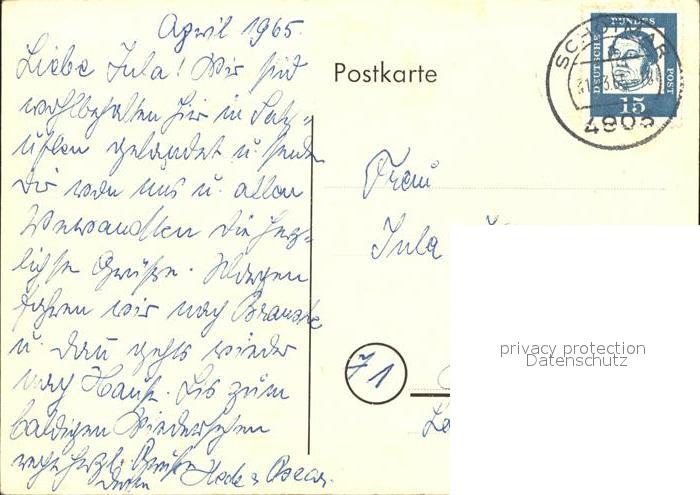 April 1965.
Liebe Jula! Wir sind
wohlbehalten hier in Salz=
uflen gelandet u. senden
Dir von uns u. allen
Verwandten die herz=
lichsten Grüße. Morgen
fahren wir nach
u. dann gehts wieder
nach Hause. Bis zum
baldigen Wiedersehen
recht herzl. Grüße
Postkarte
DEUTSCHE BUNDESPOST
15
SCHÖTMAR
4903
Frau
Jula
71
privacy protection
Datenschutz